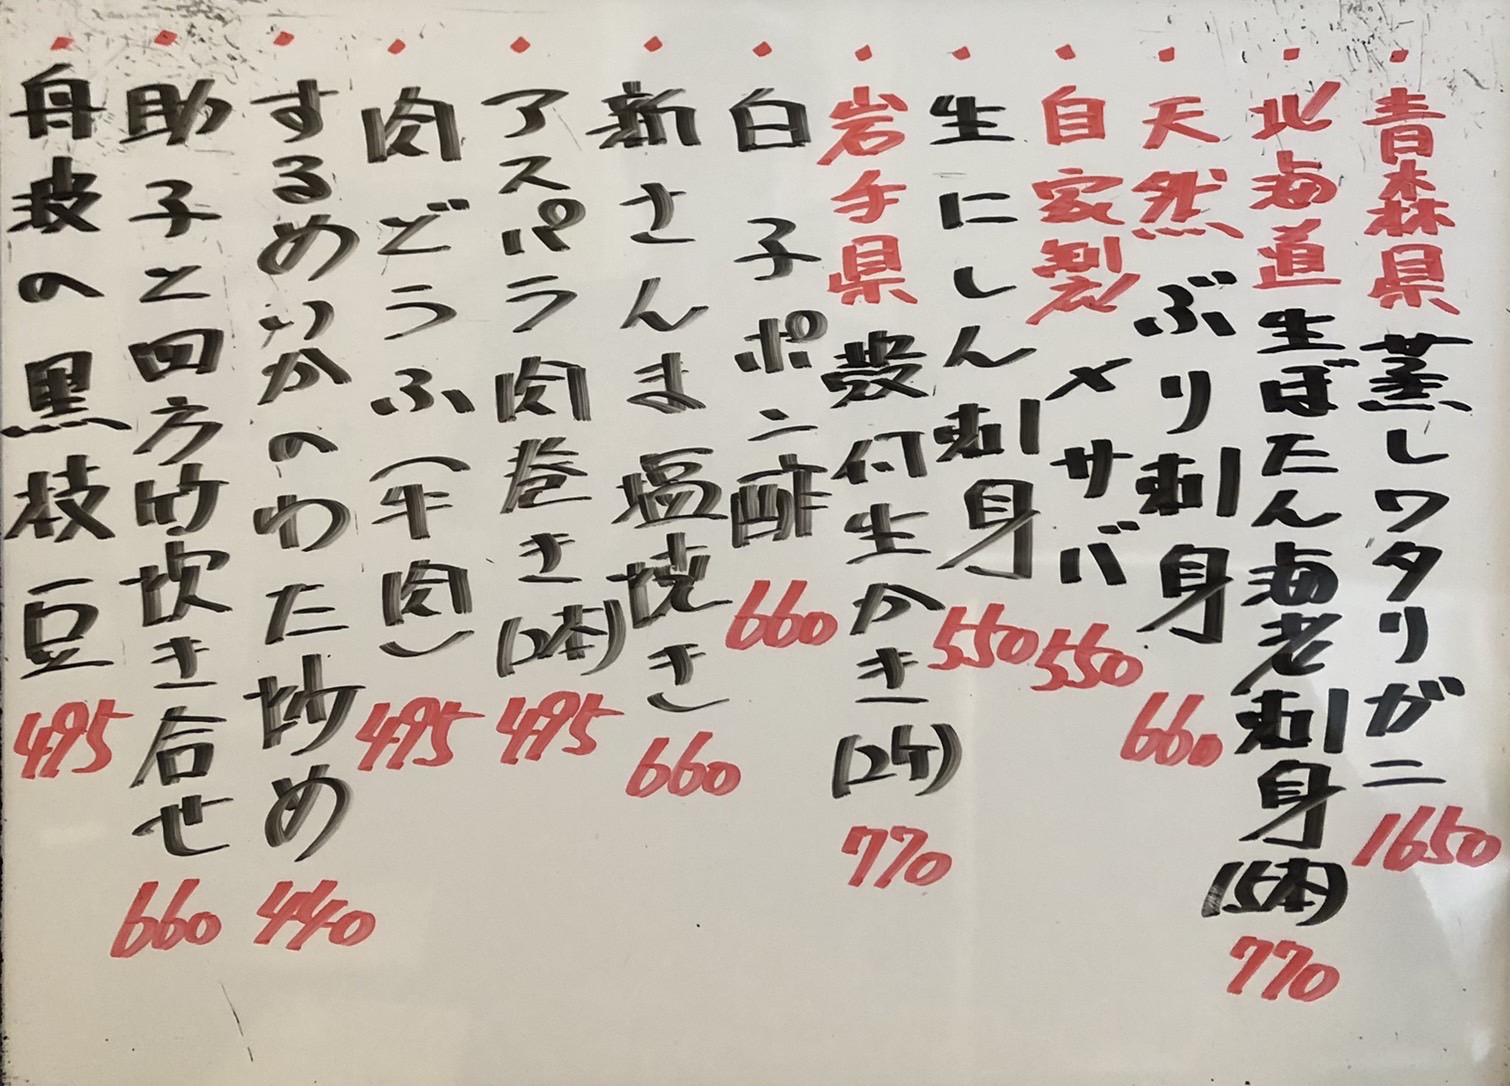 青森県 蒸しワタリガニ 1650
北海道 生ぼたん海老刺身 (15本) 770
天然 ぶり刺身 660
自家製 〆サバ 550
生にしん刺身 550
岩手県 殻付生かき(2ケ) 770
白子ポン酢 660
新さんま塩焼き 660
アスパラ肉巻き(2本) 495
肉どうふ(牛肉) 495
するめいかのわた炒め 440
助子と四方竹炊き合せ 660
丹波の黒枝豆 495